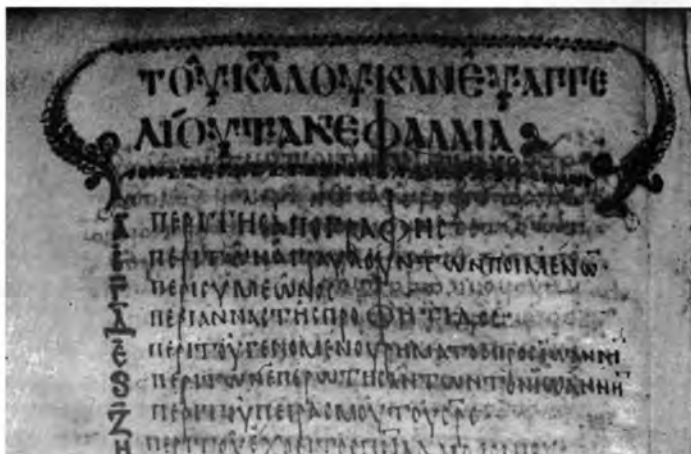 ΤΟΥ ΚΑΤΑ ΛΟΥΚΑΝ ΕΥΑΓΓΕ
ΛΙΟΥ ΤΑ ΚΕΦΑΛΑΙΑ
Α ΠΕΡΙ ΤΗϹ ΑΠΟΓΡΑΦΗϹ
Β ΠΕΡΙ ΤΩΝ ΑΓΡΑΥΛΟΥΝΤΩΝ ΠΟΙΜΕΝΩ̅
Γ ΠΕΡΙ ϹΥΜΕΩΝΟϹ
Δ ΠΕΡΙ ΑΝΝΑϹ ΤΗϹ ΠΡΟΦΗΤΙΔΟϹ
Ε ΠΕΡΙ ΤΟΥ ΓΕΝΟΜΕΝΟΥ ΡΗΜΑΤΟϹ ΠΡΟϹ ΙΩΑΝΝΗ̅
Ϛ ΠΕΡΙ ΤΩΝ ΕΠΕΡΩΤΗϹΑΝΤΩΝ ΤΟΝ ΙΩΑΝΝΗ̅
Ζ ΠΕΡΙ ΤΟΥ ΠΕΙΡΑϹΜΟΥ ΤΟΥ ϹΡϹ
Η ΠΕΡΙ ΤΟΥ ΕΧΟΝΤΟϹ